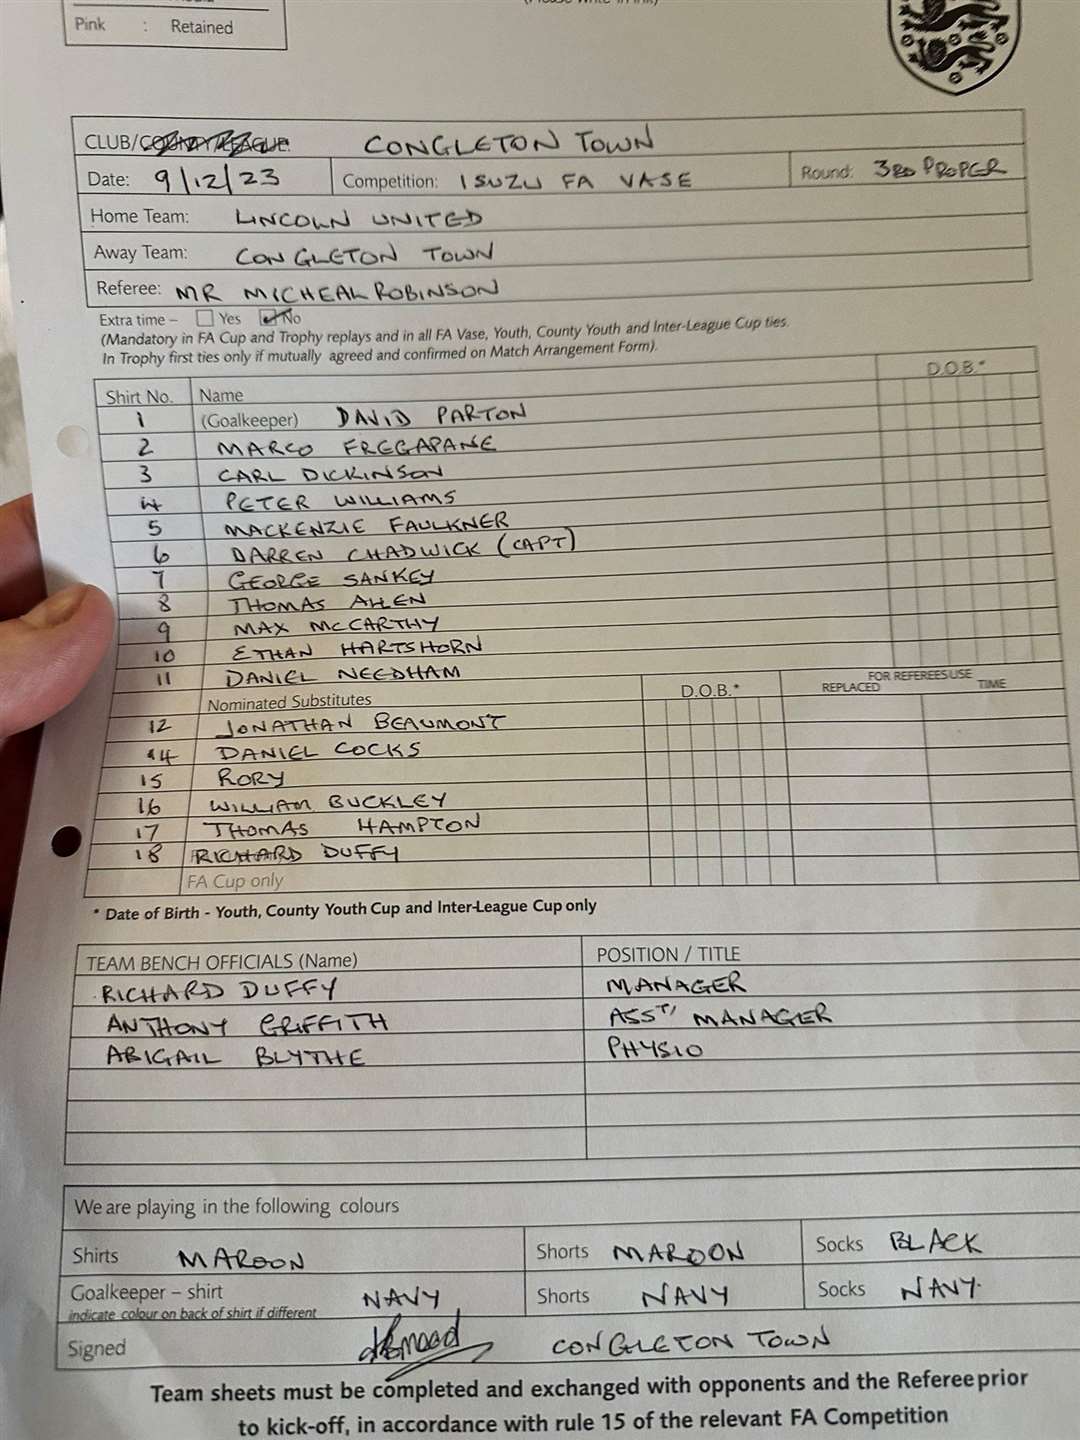 Pink : Retained
CLUB/COUNTY/LEAGUE: CONGLETON TOWN
Date: 9/12/23 Competition: ISUZU FA VASE Round: 3RD PROPER
Home Team: LINCOLN UNITED
Away Team: CONGLETON TOWN
Referee: MR MICHEAL ROBINSON
Extra time – Yes No
(Mandatory in FA Cup and Trophy replays and in all FA Vase, Youth, County Youth and Inter-League Cup ties.
In Trophy first ties only if mutually agreed and confirmed on Match Arrangement Form).
Shirt No. Name D.O.B.*
1 (Goalkeeper) DAVID PARTON
2 MARCO FREGAPANE
3 CARL DICKINSON
4 PETER WILLIAMS
5 MACKENZIE FAULKNER
6 DARREN CHADWICK (CAPT)
7 GEORGE SANKEY
8 THOMAS ALLEN
9 MAX MCCARTHY
10 ETHAN HARTSHORN
11 DANIEL NEEDHAM
Nominated Substitutes D.O.B.* FOR REFEREES USE
REPLACED TIME
12 JONATHAN BEAUMONT
14 DANIEL COCKS
15 RORY
16 WILLIAM BUCKLEY
17 THOMAS HAMPTON
18 RICHARD DUFFY
FA Cup only
* Date of Birth - Youth, County Youth Cup and Inter-League Cup only
TEAM BENCH OFFICIALS (Name) POSITION / TITLE
RICHARD DUFFY MANAGER
ANTHONY GRIFFITH ASST MANAGER
ABIGAIL BLYTHE PHYSIO
We are playing in the following colours
Shirts MAROON Shorts MAROON Socks BLACK
Goalkeeper – shirt NAVY Shorts NAVY Socks NAVY.
indicate colour on back of shirt if different
Signed CONGLETON TOWN
Team sheets must be completed and exchanged with opponents and the Referee prior
to kick-off, in accordance with rule 15 of the relevant FA Competition